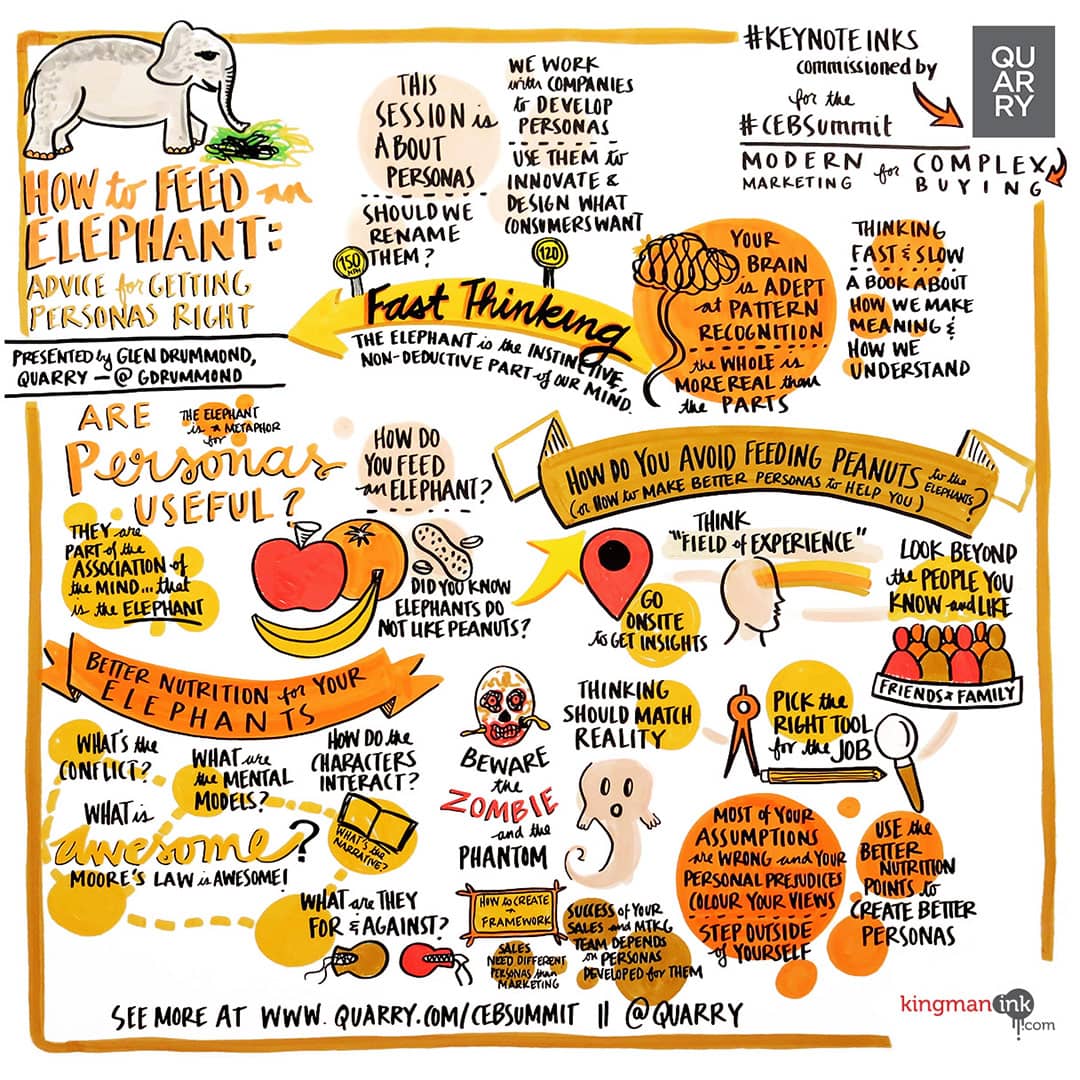 HOW to FEED an
ELEPHANT:
ADVICE for GETTING
PERSONAS RIGHT
PRESENTED by GLEN DRUMMOND,
QUARRY — @GDRUMMOND
THIS
SESSION is
ABOUT
PERSONAS
SHOULD WE
RENAME
THEM?
WE WORK
with COMPANIES
to DEVELOP
PERSONAS
USE THEM to
INNOVATE &
DESIGN WHAT
CONSUMERS WANT
#KEYNOTEINKS
commissioned by
for the
#CEBSummit
QU
AR
RY
MODERN
MARKETING
for COMPLEX
BUYING
150
MPH
120
Fast Thinking
THE ELEPHANT is the INSTINCTIVE,
NON-DEDUCTIVE PART of OUR MIND.
YOUR
BRAIN
is ADEPT
at PATTERN
RECOGNITION
the WHOLE is
MORE REAL than
the PARTS
THINKING
FAST & SLOW
A BOOK ABOUT
HOW WE MAKE
MEANING &
HOW WE
UNDERSTAND
ARE
Personas
USEFUL?
THE ELEPHANT
is a METAPHOR
for
THEY are
PART of the
ASSOCIATION of
the MIND... that
is the ELEPHANT
HOW DO
YOU FEED
an ELEPHANT?
DID YOU KNOW
ELEPHANTS DO
NOT LIKE PEANUTS?
HOW DO YOU AVOID FEEDING PEANUTS to the ELEPHANTS?
(or HOW to MAKE BETTER PERSONAS to HELP YOU)
THINK
"FIELD of EXPERIENCE"
GO
ONSITE
to GET INSIGHTS
LOOK BEYOND
the PEOPLE YOU
KNOW and LIKE
FRIENDS & FAMILY
BETTER NUTRITION for YOUR
ELEPHANTS
WHAT'S the
CONFLICT?
WHAT are
the MENTAL
MODELS?
HOW DO the
CHARACTERS
INTERACT?
WHAT is
awesome?
MOORE'S LAW is AWESOME!
WHAT'S the
NARRATIVE?
WHAT are THEY
FOR & AGAINST?
BEWARE
the
ZOMBIE
and the
PHANTOM
THINKING
SHOULD MATCH
REALITY
PICK the
RIGHT TOOL
for the JOB
HOW to CREATE
a
FRAMEWORK
SALES
NEED DIFFERENT
PERSONAS than
MARKETING
SUCCESS of YOUR
SALES and MKTG
TEAM DEPENDS
on PERSONAS
DEVELOPED for THEM
MOST of YOUR
ASSUMPTIONS
are WRONG and YOUR
PERSONAL PREJUDICES
COLOUR YOUR VIEWS
STEP OUTSIDE
of YOURSELF
USE the
BETTER
NUTRITION
POINTS to
CREATE BETTER
PERSONAS
SEE MORE AT WWW.QUARRY.COM/CEBSUMMIT || @QUARRY
kingman ink
.com